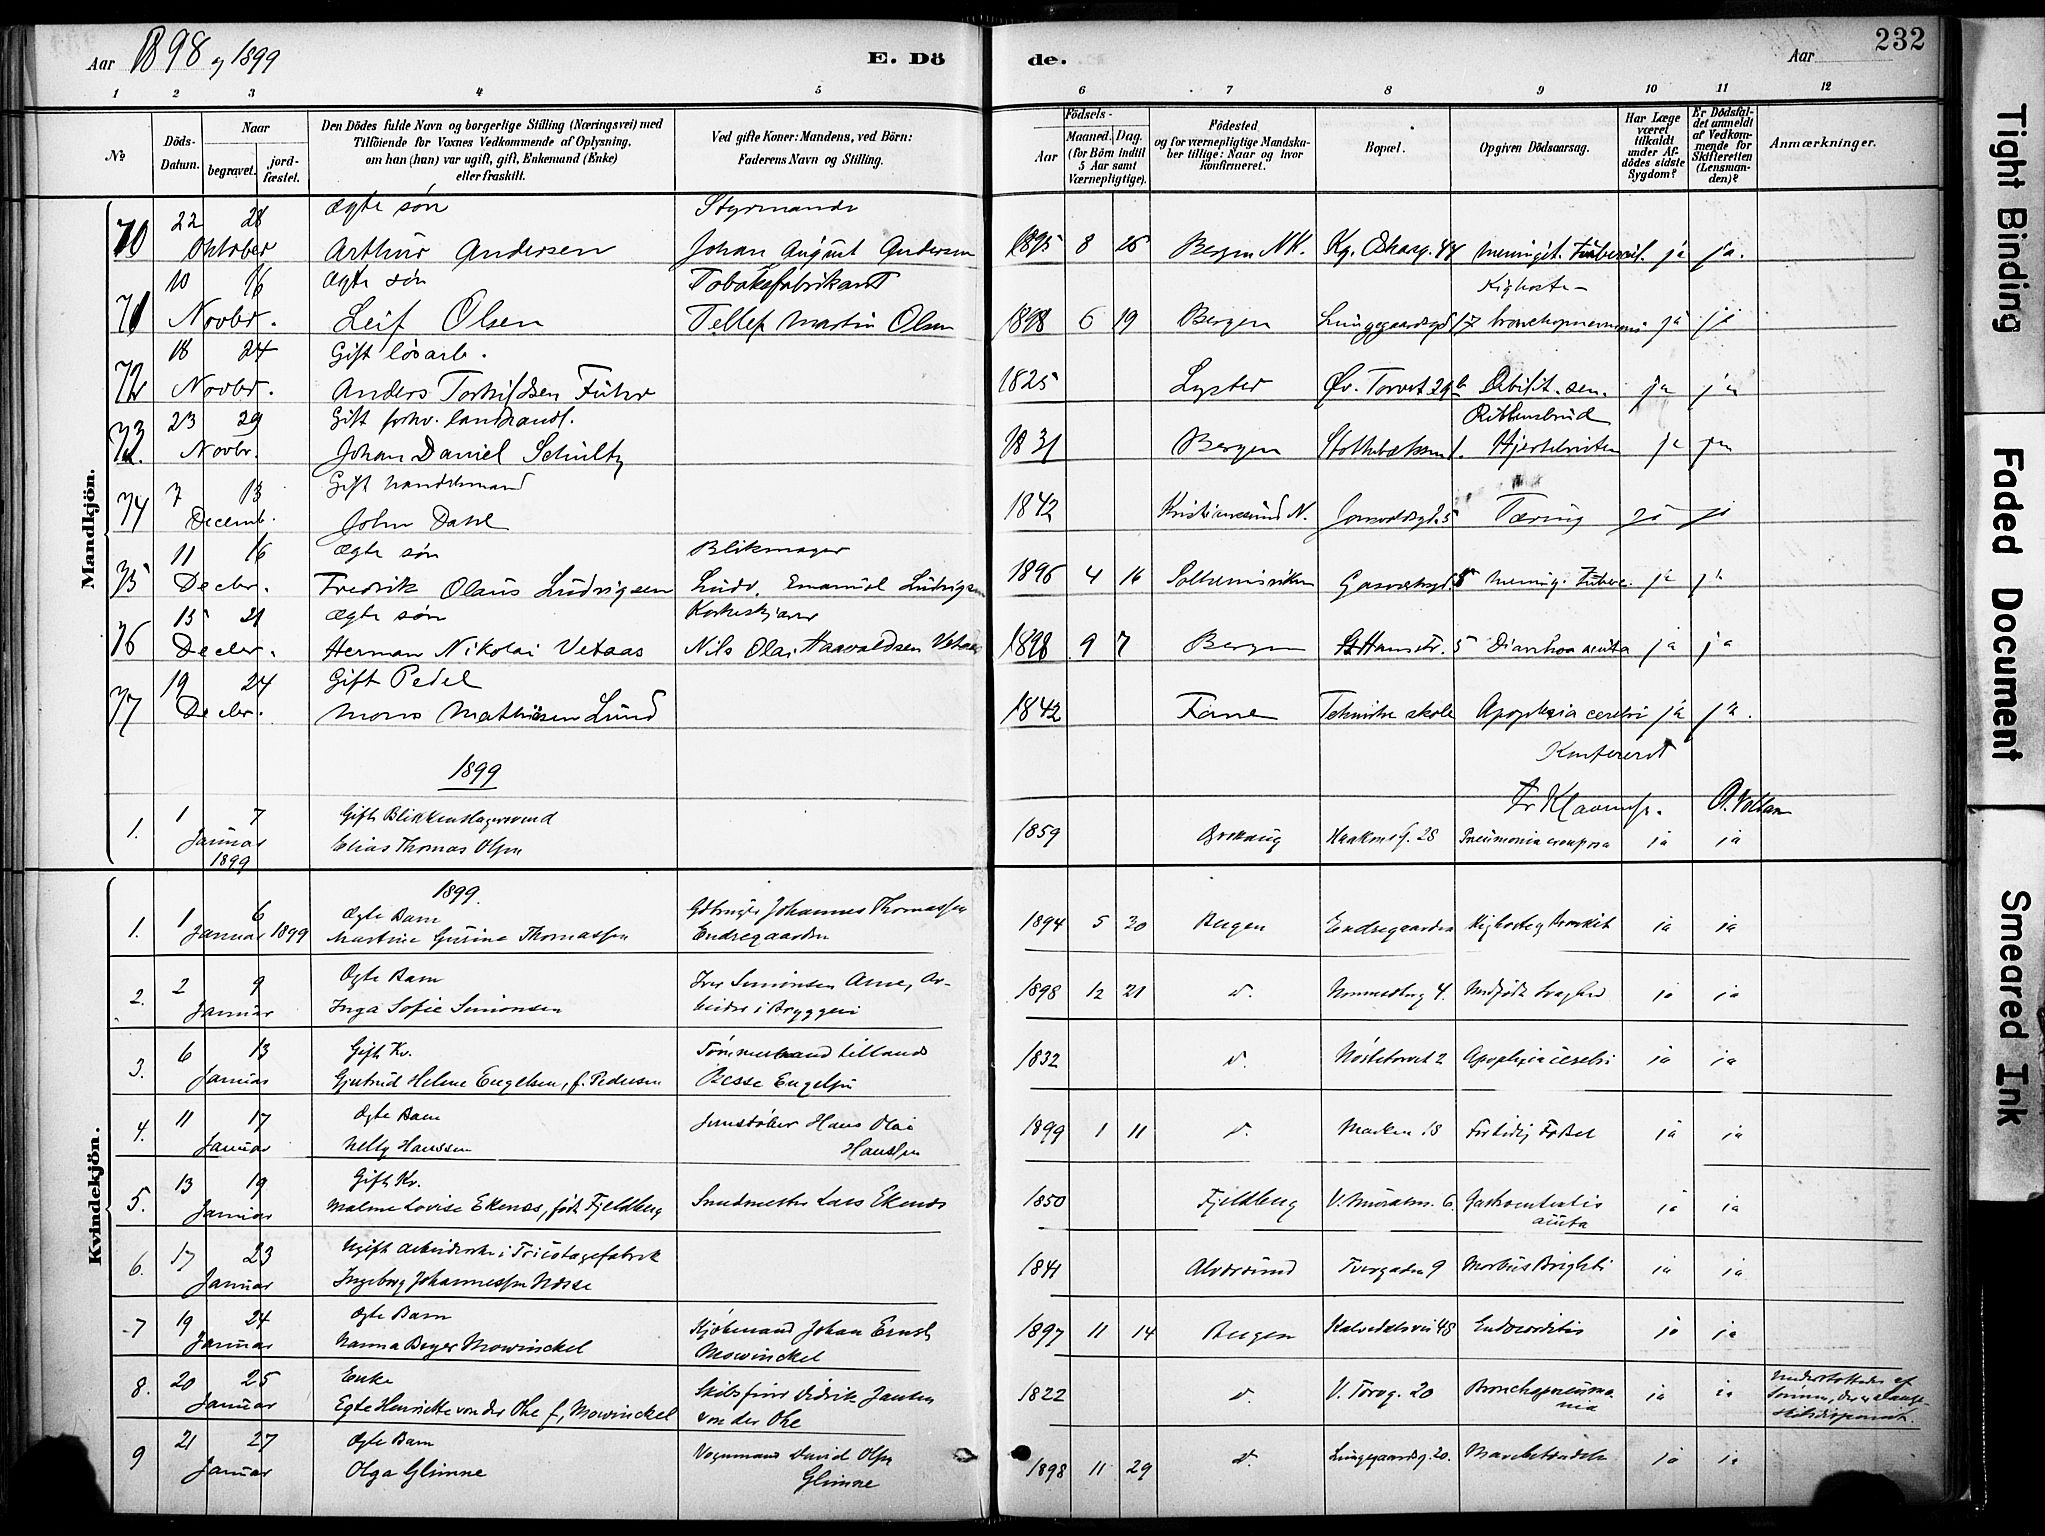 Aar 1898 og 1899 E. Dö
de. Aar 232
1 2 3 4 5 6 7 8 9 10 11 12
No Döds-Datum. Naar begravet. jord-fæstet. Den Dödes fulde Navn og borgerlige Stilling (Næringsvei) med Tilföiende for Voxnes Vedkommende af Oplysning, om han (hun) var ugift, gift, Enkemand (Enke) eller fraskilt. Ved gifte Koner: Mandens, ved Börn: Faderens Navn og Stilling. Födsels- Aar Maaned. Dag. (for Börn indtil 5 Aar samt Værnepligtige). Födested og for værnepligtige Mandskaber tillige: Naar og hvor konfirmeret. Bopæl. Opgiven Dödsaarsag. Har Læge været tilkaldt under Afdödes sidste Sygdom? Er Dödsfaldet anmeldt af Vedkommende for Skifteretten (Lensmanden)? Anmærkninger.
Mandkjön.
22 28 Ægte søn Styrmand
70 Oktober Arthur Andersen Johan August Andersen 1895 8 26 Bergen N.K. Kg. Oskarsg. 44 Meningit. tubercul. ja ja.
10 16 Ægte søn Tobaksfabrikant Kighoste
71 Novbr. Leif Olsen Tellef Martin Olsen 1898 6 19 Bergen Lungegaardsgd 17 bronchopneumoni ja ja
18 24 Gift løsarb.
72 Novbr. Anders Torkildsen Fuhr 1825 Lyster Øv. Torvet 29b Debilit. sen. ja ja
23 29 Gift forhv. landhandl. Ribbensbrud
73 Novbr. Johan Daniel Schultz 1831 Bergen 1. ja ja
7 13 Gift handelsmand
74 Decemb. John Dahl 1842 Kristiansund N. 5 Tæring ja ja
11 16 Ægte søn Blikmager
75 Decbr. Fredrik Olaus Ludvigsen Ludv. Emanuel Ludvigsen 1896 4 16 Solheimsviken Mening. tuberc. ja ja
15 21 Ægte søn
76 Decbr. Herman Nikolai Vetaas Nils Olai Haavaldsen Vetaas 1898 9 7 Bergen 5 Diarrhoa acuta ja ja
19 24 Gift Pedel
77 Decbr. Mons Mathiesen Lund 1842 Fane Tekniske skole Apoplexia cerebri ja ja.
Konfereret
1899
1 7 Gift Blikkenslagersvend
1. Januar 1899 Elias Thomas Olsen 1859 Haakonsg. 28 Pneumonia crouposa ja ja
Kvindekjön.
1899.
1 6 Ægte Barn Johannes Thomassen
1. Januar 1899 Martine Gurine Thomassen Endregaarden 1894 5 30 Bergen Endregaarden Kighoste og Bronkit ja ja
2 9 Ægte Barn Iver Simonsen Arne, Ar-
2. Januar Inga Sofie Simonsen beider i Bryggeri 1898 12 21 d. 4. Medfødt Svaghed ja ja
6 13 Gift Kv. Tømmermand
3. Januar Gjertrud Helene Engelsen, f. Pedersen Besse Engelsen 1832 d. Nøstetorvet 2 Apoplexia cerebri ja ja
11 17 Ægte Barn Jernstøber Hans Olai
4. Januar Nelly Hanssen Hanssen 1899 1 11 d. Marken 18 Fortidig Fødsel ja ja
13 19 Gift Kv.
5. Januar Malene Lovise Ekenæs, født Fjeldberg Smedmester Lars Ekenæs 1850 Fjeldberg V. Muralm. 6 Gastroenteritis acuta ja ja
17 23 Ugift Arbeiderske i Tricotagefabrik
6. Januar Ingeborg Johannessen Næsse 1841 Alversund Tvergaden 9 Morbus Brighti ja ja
19 24 Ægte Barn Kjøbmand Johan Ernst
7 Januar Nanna Beyer Mowinckel Mowinckel 1897 11 14 Bergen Kalvedalsvei 48 Endocarditis ja ja
20 25 Enke Skibsfører Didrik Jansen
8. Januar Egte Henriette von der Ohe f. Mowinckel von der Ohe 1822 d. V. Torvg. 20 Bronchopneumonia ja ja Understøttedes af Sønnen,
21 27 Ægte Barn Vognmand David Olsen
9 Januar Olga Glimne Glimne 1898 11 29 d. Lungegaardsg. 20. Mavebetændelse ja ja
Tight Binding
Faded Document
Smeared Ink